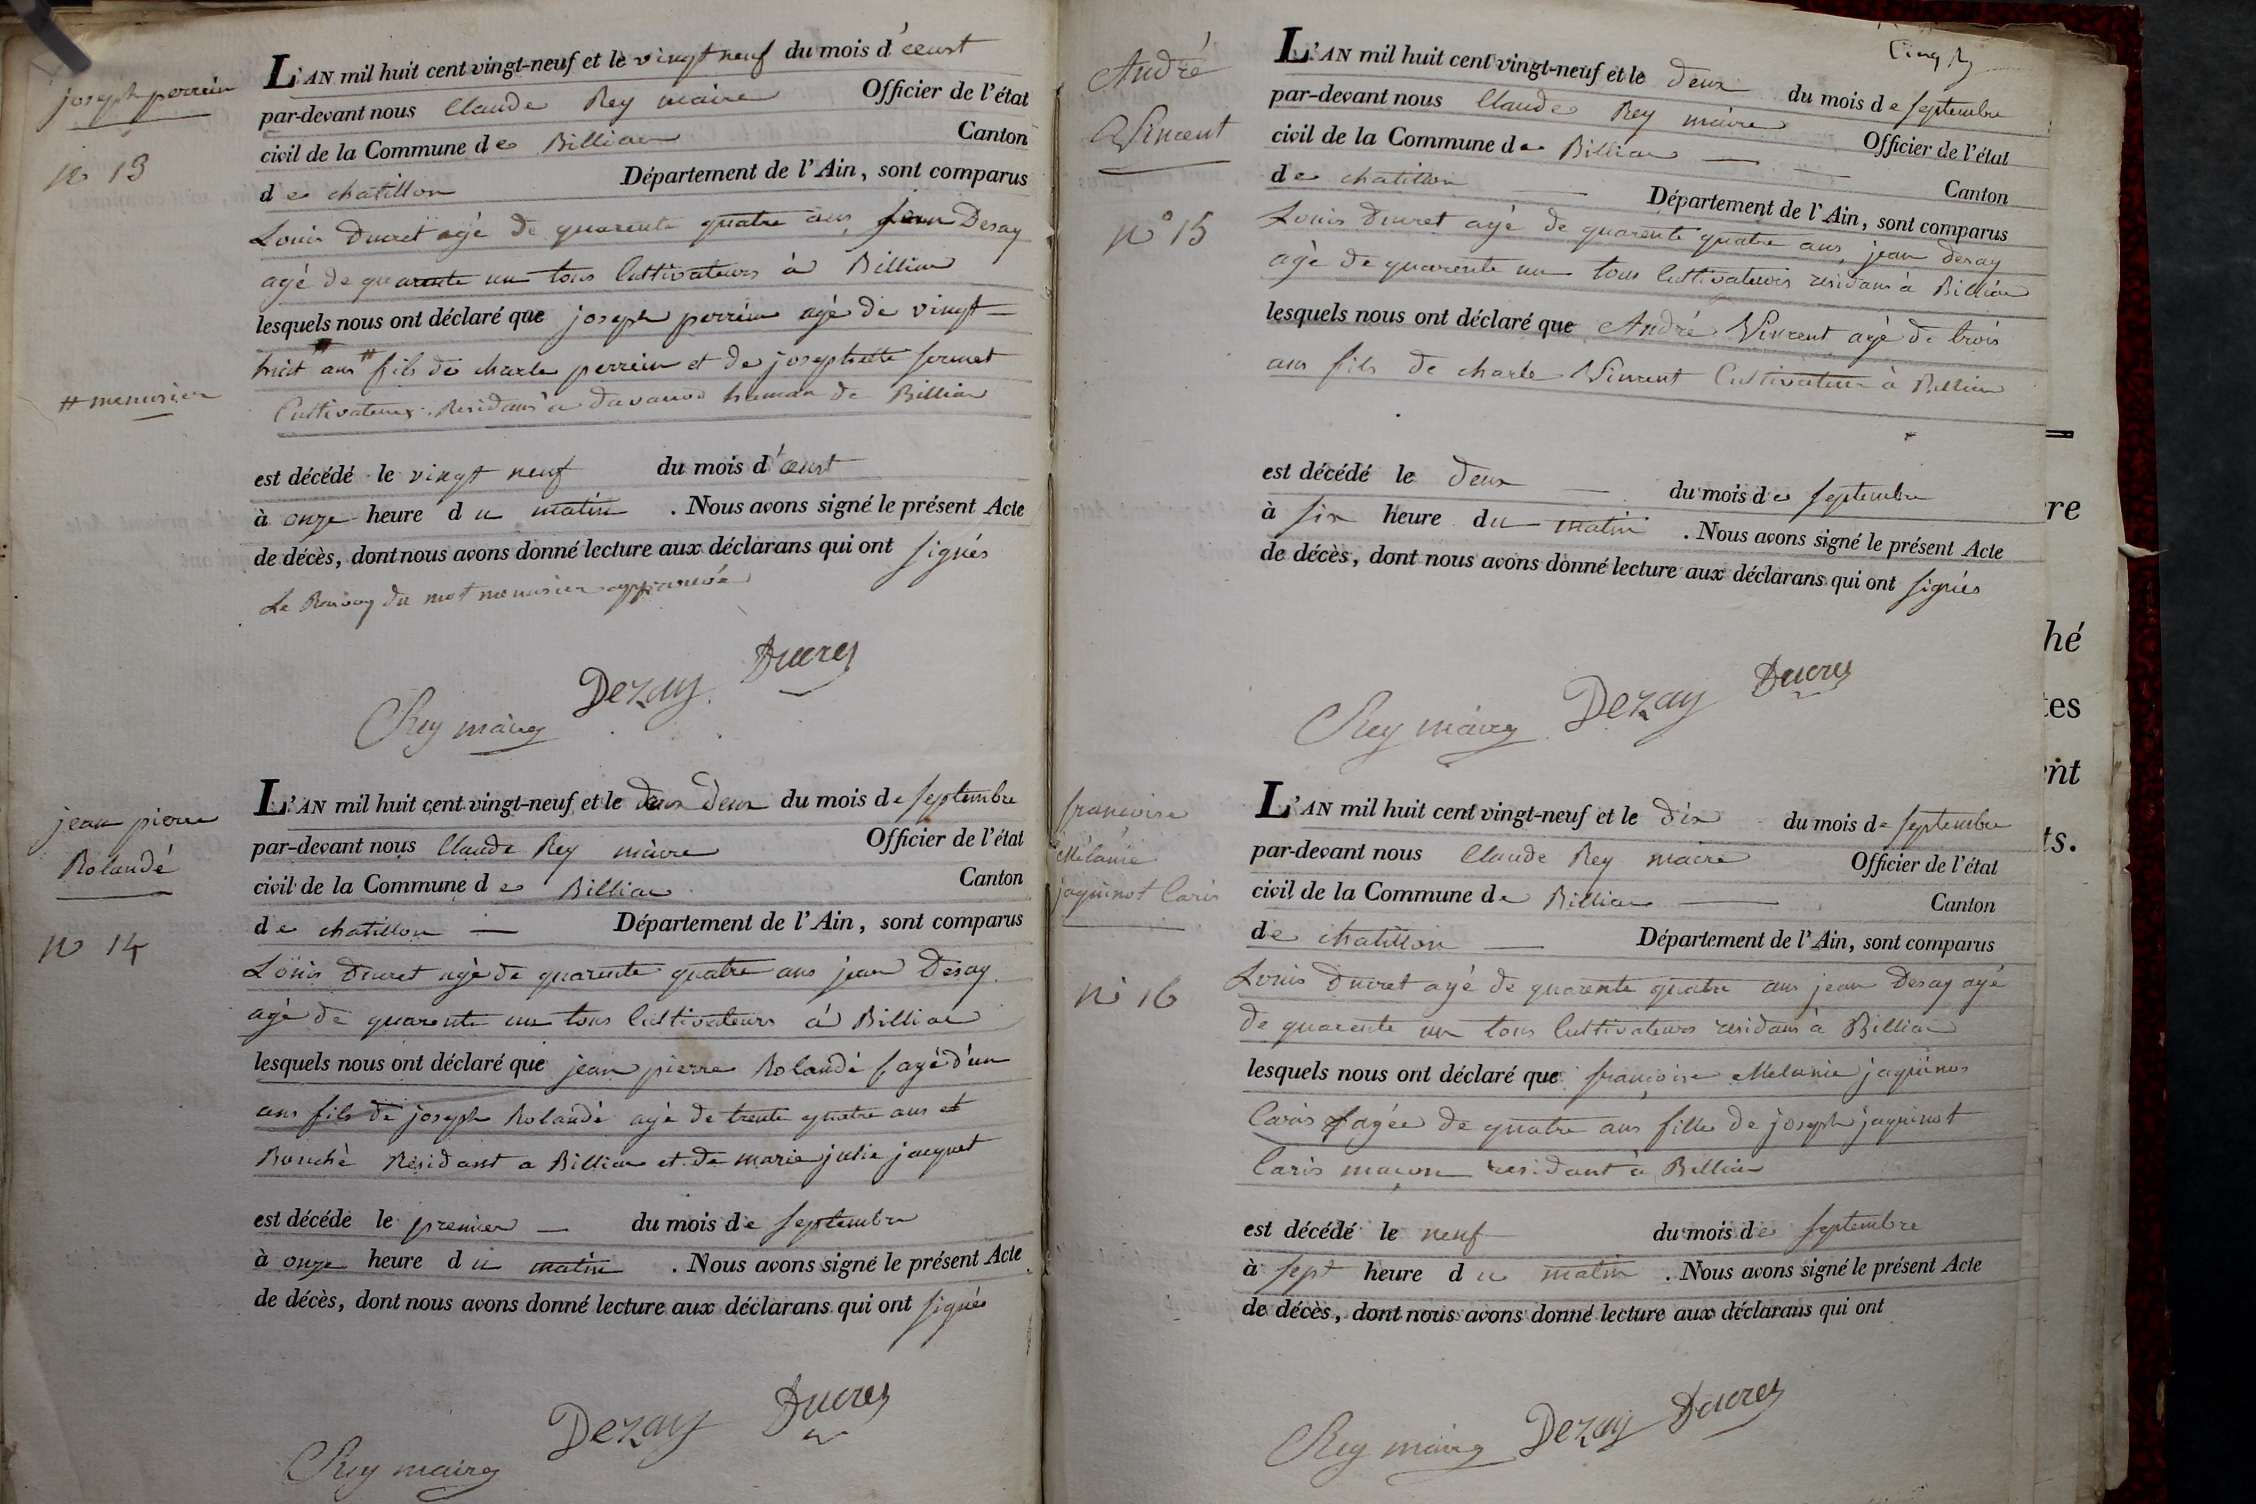 joseph perrein
n° 13
L'AN mil huit cent vingt-neuf et le vingt neuf du mois d'
par-devant nous Claude Rey maire Officier de l'état
civil de la Commune de Billiat Canton
de chatillon Département de l'Ain, sont comparus
Louis Ducret agé de quarente quatre ans, jean Desay
agé de quarante un tous Cultivateurs à Billiat
lesquels nous ont déclaré que joseph perrein agé de vingt
huit ans # fils de charle perrein et de josephette
# menusier
Cultivateurs Residans a de Billiat
est décédé le vingt neuf du mois d'
à onze heure du matin . Nous avons signé le présent Acte
de décès, dont nous avons donné lecture aux déclarans qui ont signés
Le Renvoy du mot menusier approuvé
Rey maire Dezay Ducret
jean pierre
Rolandé
n° 14
L'AN mil huit cent vingt-neuf et le deux deux du mois de septembre
par-devant nous Claude Rey maire Officier de l'état
civil de la Commune de Billiat Canton
de chatillon Département de l'Ain, sont comparus
Louis Ducret agé de quarente quatre ans jean Desay
agé de quarente un tous Cultivateurs à Billiat
lesquels nous ont déclaré que jean pierre Rolandé agé d'un
ans fils de joseph Rolandé agé de trente quatre ans et
Residant a Billiat et de marie julie jacquet
est décédé le premier du mois de septembre
à onze heure du matin . Nous avons signé le présent Acte
de décès, dont nous avons donné lecture aux déclarans qui ont signés
Rey maire Dezay Ducret
André
Vincent
n° 15
L'AN mil huit cent vingt-neuf et le deux du mois de septembre
par-devant nous Claude Rey maire Officier de l'état
civil de la Commune de Billiat Canton
de chatillon Département de l'Ain, sont comparus
Louis Ducret agé de quarente quatre ans, jean desay
agé de quarente un tous Cultivateurs residans à Billiat
lesquels nous ont déclaré que André Vincent agé de trois
ans fils de charle Vincent Cultivateur à Billiat
est décédé le deux du mois de septembre
à six heure du matin . Nous avons signé le présent Acte
de décès, dont nous avons donné lecture aux déclarans qui ont signés
Rey maire Dezay Ducret
françoise
Mélanie
jaquinot Caris
n° 16
L'AN mil huit cent vingt-neuf et le dix du mois de septembre
par-devant nous Claude Rey maire Officier de l'état
civil de la Commune de Billiat Canton
de chatillon Département de l'Ain, sont comparus
Louis Ducret agé de quarente quatre ans jean Desay agé
de quarente un tous Cultivateurs residans à Billiat
lesquels nous ont déclaré que françoise Melanie jaquinot
Caris agée de quatre ans fille de joseph jaquinot
Caris maçon residant à Billiat
est décédé le neuf du mois de septembre
à sept heure du matin . Nous avons signé le présent Acte
de décès, dont nous avons donné lecture aux déclarans qui ont
Rey maire Dezay Ducret
re
hé
tes
ent
ts.